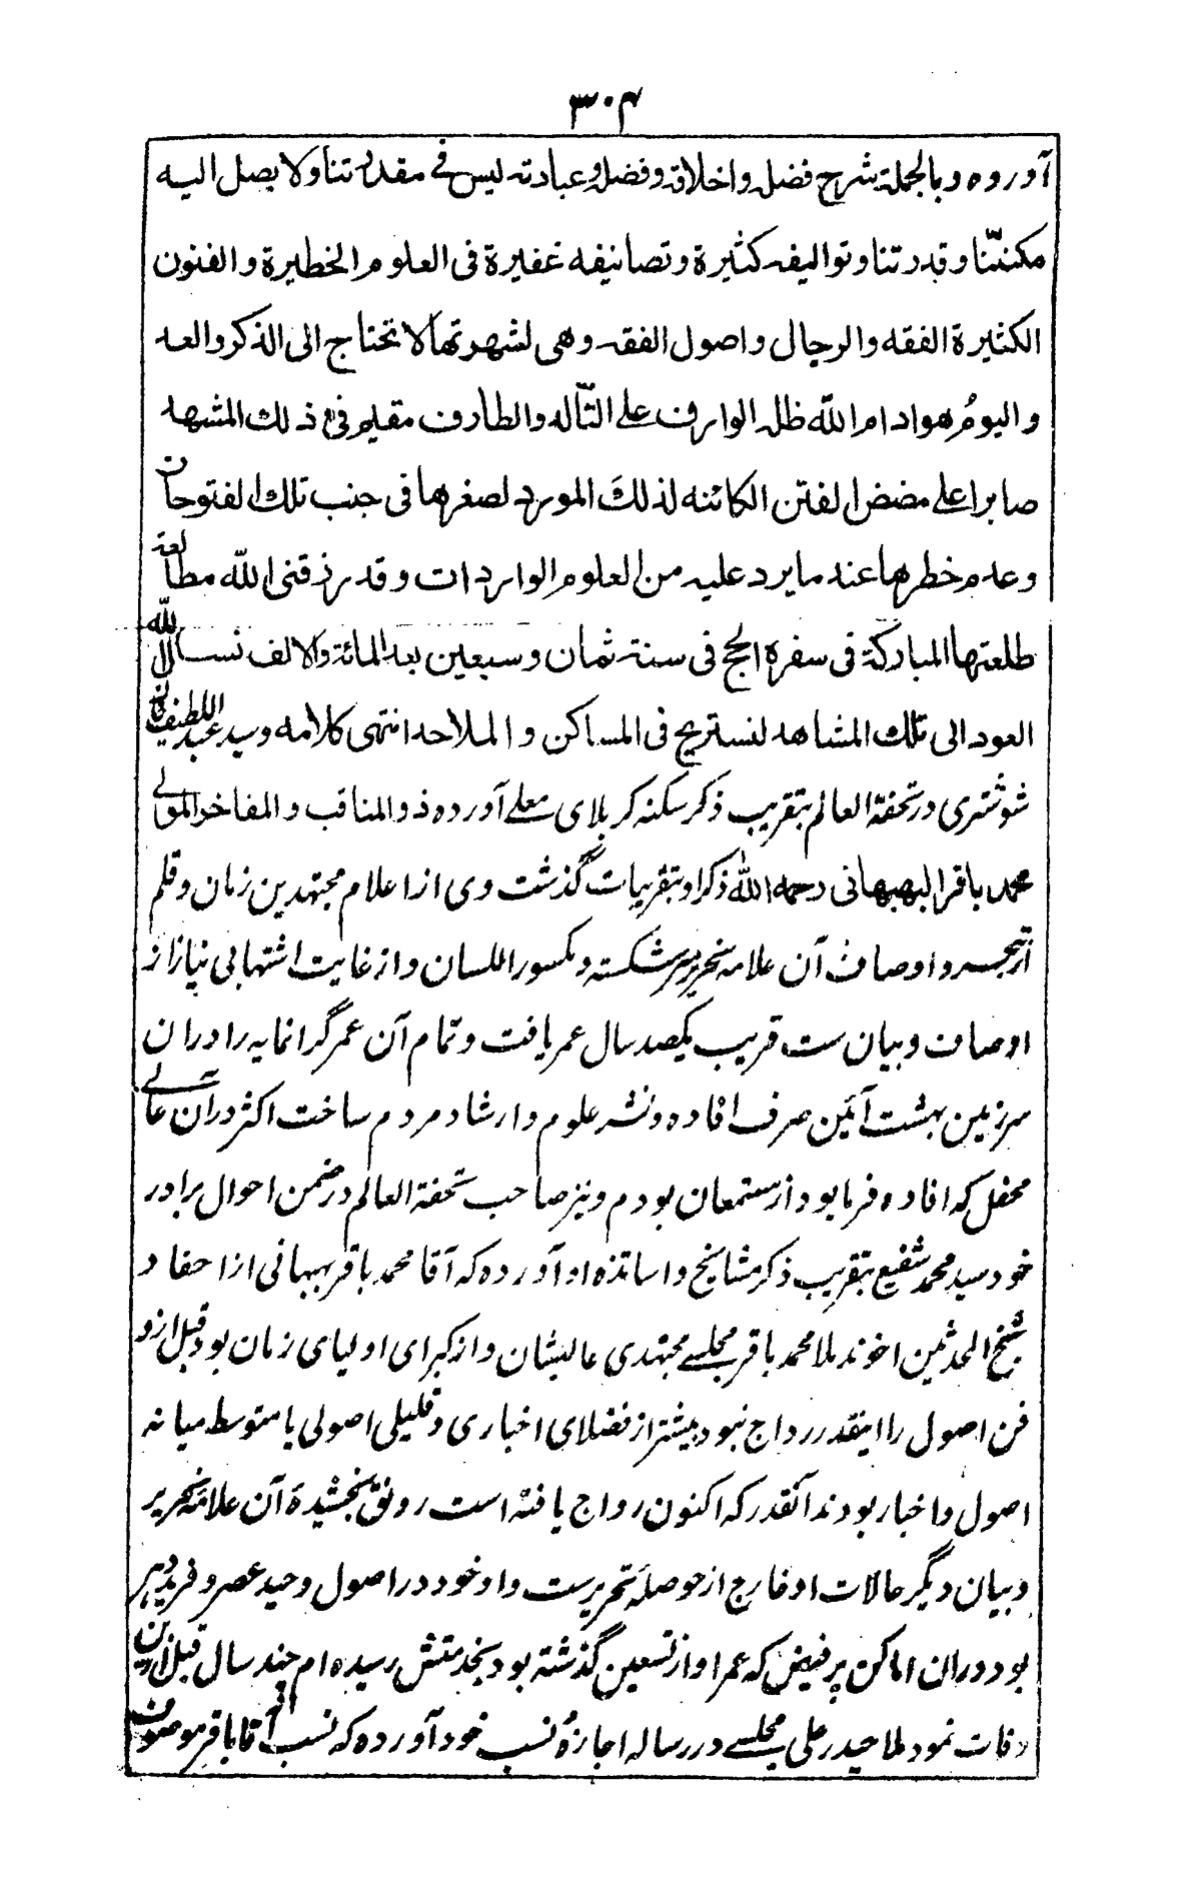 ۳۰۴
آورده وبالجملة شرح فضله واخلاقه وفضله وعبادته ليس في مقدرتنا ولا يصل اليه
مكنتنا وقدرتنا وتواليفه كثيرة وتصانيفه غفيرة فى العلوم الخطيرة والفنون
الكثيرة الفقه والرجال واصول الفقه وهى لشهرتها لا تحتاج الى الذكر والعد
واليوم هو ادام الله ظله الوارف على التاله والطارف مقيم فى ذلك المشهد
صابرا على مضض الفتن الكائنه لذلك المورد لصغرها فى جنب تلك الفتوحات
وعدم خطرها عند ما يرد عليه من العلوم الواردات وقد رزقنى الله مطالعة
طلعتها المباركة فى سفرة الحج فى سنة ثمان وسبعين بعد المائة والالف نسال الله
العود الى تلك المشاهد لنستريح فى المساكن و الملاحد انتهى كلامه وسيد عبد اللطيف خان
شوشترى در تحفة العالم بتقريب ذكر سكنه كربلاى معلے آورده ذو المناقب والمفاخر المولے
محمد باقر البهبهانى رحمه الله ذكر او بتقريبات گذشت وى از اعلام مجتهدين زمان و قلم
از تحرير اوصاف آن علامه نحرير سرشكسته و مكسور اللسان و از غايت اشتهار بى نياز از
اوصاف و بيان ست قريب يكصد سال عمر يافت و تمام آن عمر گرانمايه را در ان
سرزمين بهشت آئين صرف افاده و نشر علوم و ارشاد مردم ساخت اكثر در آن عالے
محفل كه افاده فرما بود از مستمعان بودم و نيز صاحب تحفة العالم در ضمن احوال برادر
خود سيد محمد شفيع بتقريب ذكر مشايخ و اساتذه او آورده كه آقا محمد باقر بهبهانى از احفاد
شيخ المحدثين اخوند ملا محمد باقر مجلسے مجتهدى عاليشان و از كبراى اولياى زمان بود قبل ازو
فن اصول را اينقدر رواج نبود بيشتر از فضلاى اخبارى و قليلى اصولى يا متوسط ميانه
اصول و اخبار بودند آنقدر كه اكنون رواج يافته است رونق بخشيدهٔ آن علامهٔ نحرير
و بيان ديگر حالات او خارج از حوصلهٔ تحريرست و او خود در اصول وحيد عصر و فريد دهر
بود در ان اماكن پر فيض كه عمر او از تسعين گذشته بود بخدمتش رسيده ام چند سال قبل ازين
وفات نمود ملا حيدر على مجلسے در رساله اجازهٔ نسب خود آورده كه نسب آقا باقر موصوف